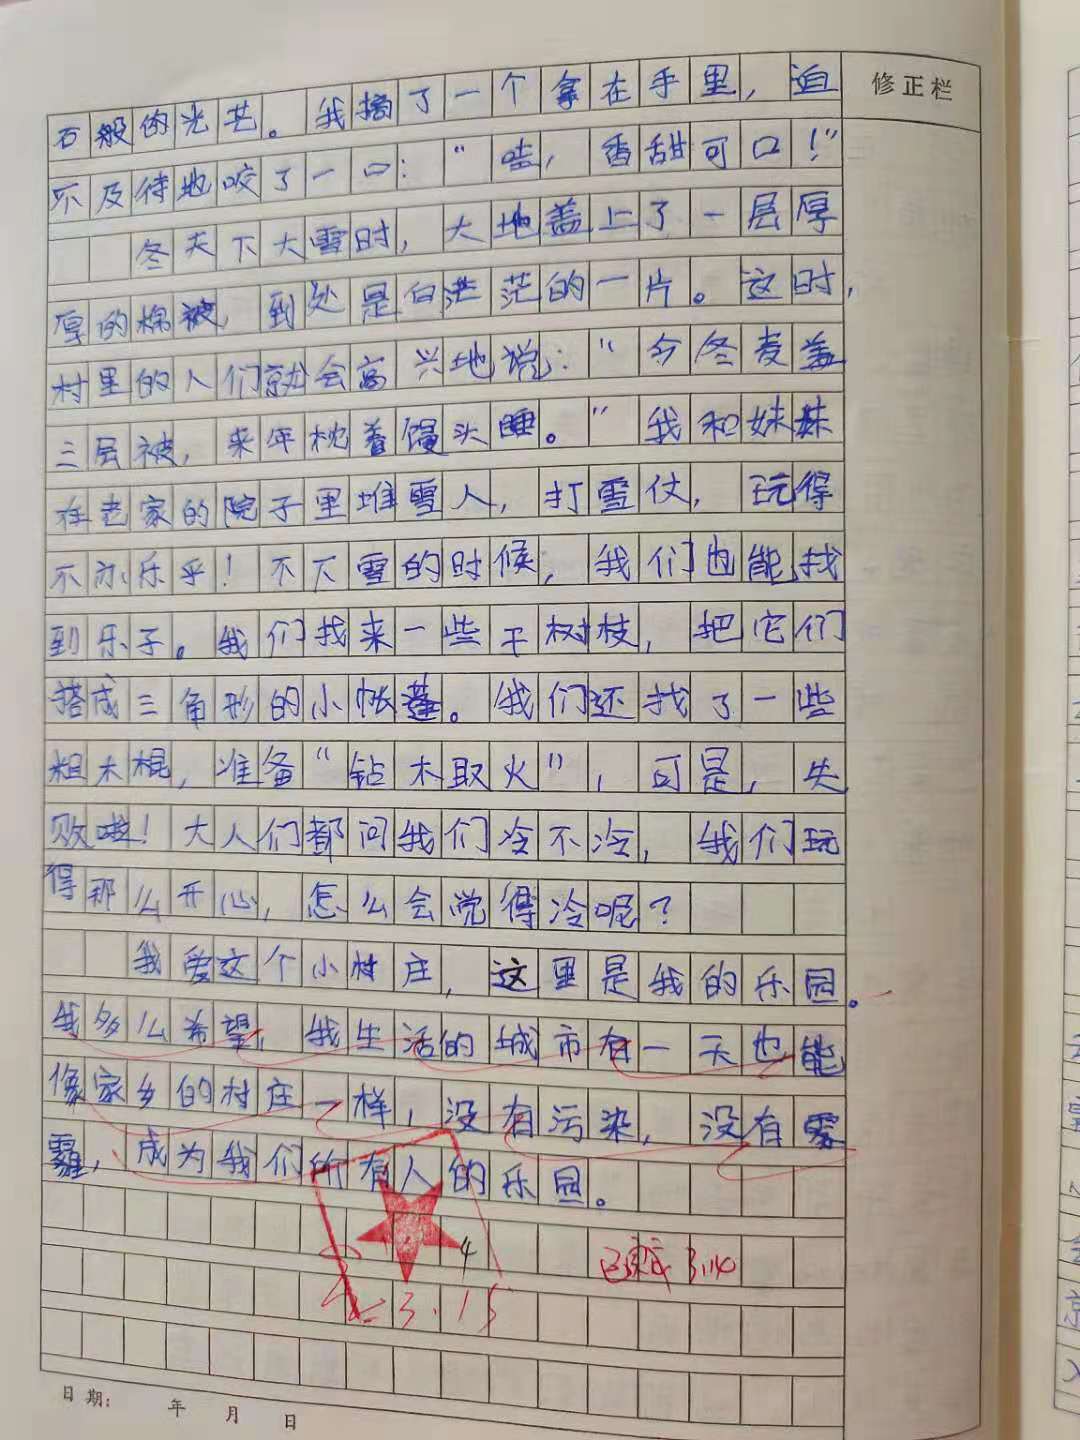 修正栏
石般的光芒。我摘了一个拿在手里，迫
不及待地咬了一口：“哇，香甜可口！”
冬天下大雪时，大地盖上了一层厚
厚的棉被，到处是白茫茫的一片。这时，
村里的人们就会高兴地说：“今冬麦盖
三层被，来年枕着馒头睡。”我和妹妹
在老家的院子里堆雪人，打雪仗，玩得
不亦乐乎！不下雪的时候，我们也能找
到乐子。我们找来一些干树枝，把它们
搭成三角形的小帐篷。我们还找了一些
粗木棍，准备“钻木取火”，可是，失
败啦！大人们都问我们冷不冷，我们玩
得那么开心，怎么会觉得冷呢？
我爱这个小村庄，这里是我的乐园。
我多么希望，我生活的城市有一天也能
像家乡的村庄一样，没有污染，没有雾
霾，成为我们所有人的乐园。
4
3.14
3.15
日期： 年 月 日